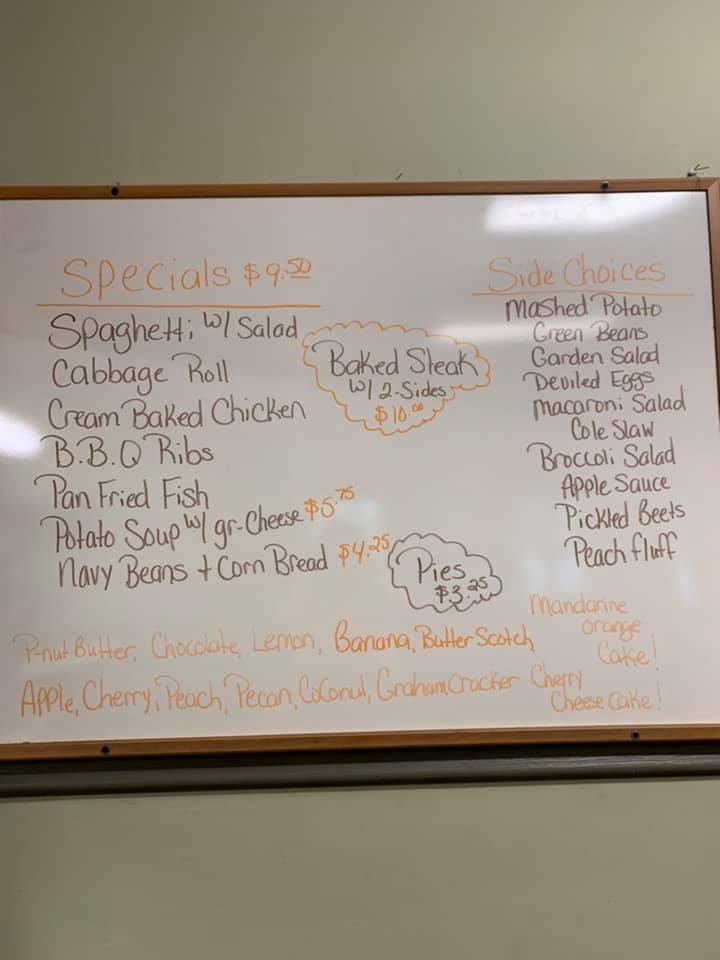 Specials $9.50
Spaghetti w/ Salad
Cabbage Roll
Cream Baked Chicken
B.B.Q Ribs
Pan Fried Fish
Potato Soup w/ gr-Cheese $5.75
Navy Beans + Corn Bread $4.25
Baked Steak
w/ 2-Sides
$10.00
Side Choices
Mashed Potato
Green Beans
Garden Salad
Deviled Eggs
Macaroni Salad
Cole Slaw
Broccoli Salad
Apple Sauce
Pickled Beets
Peach fluff
Pies
$3.25
P-nut Butter, Chocolate, Lemon, Banana, Butter Scotch
Apple, Cherry, Peach, Pecan, CoConut, Graham Cracker
Mandarine
orange
Cake!
Cherry
Cheese Cake!